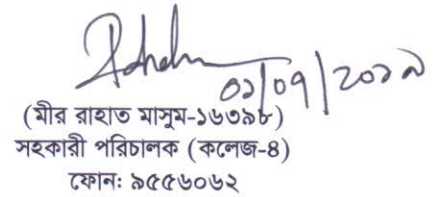 ০১/০৭/২০১৯
(মীর রাহাত মাসুম-১৬৩৯৮)
সহকারী পরিচালক (কলেজ-৪)
ফোনঃ ৯৫৫৬০৬২